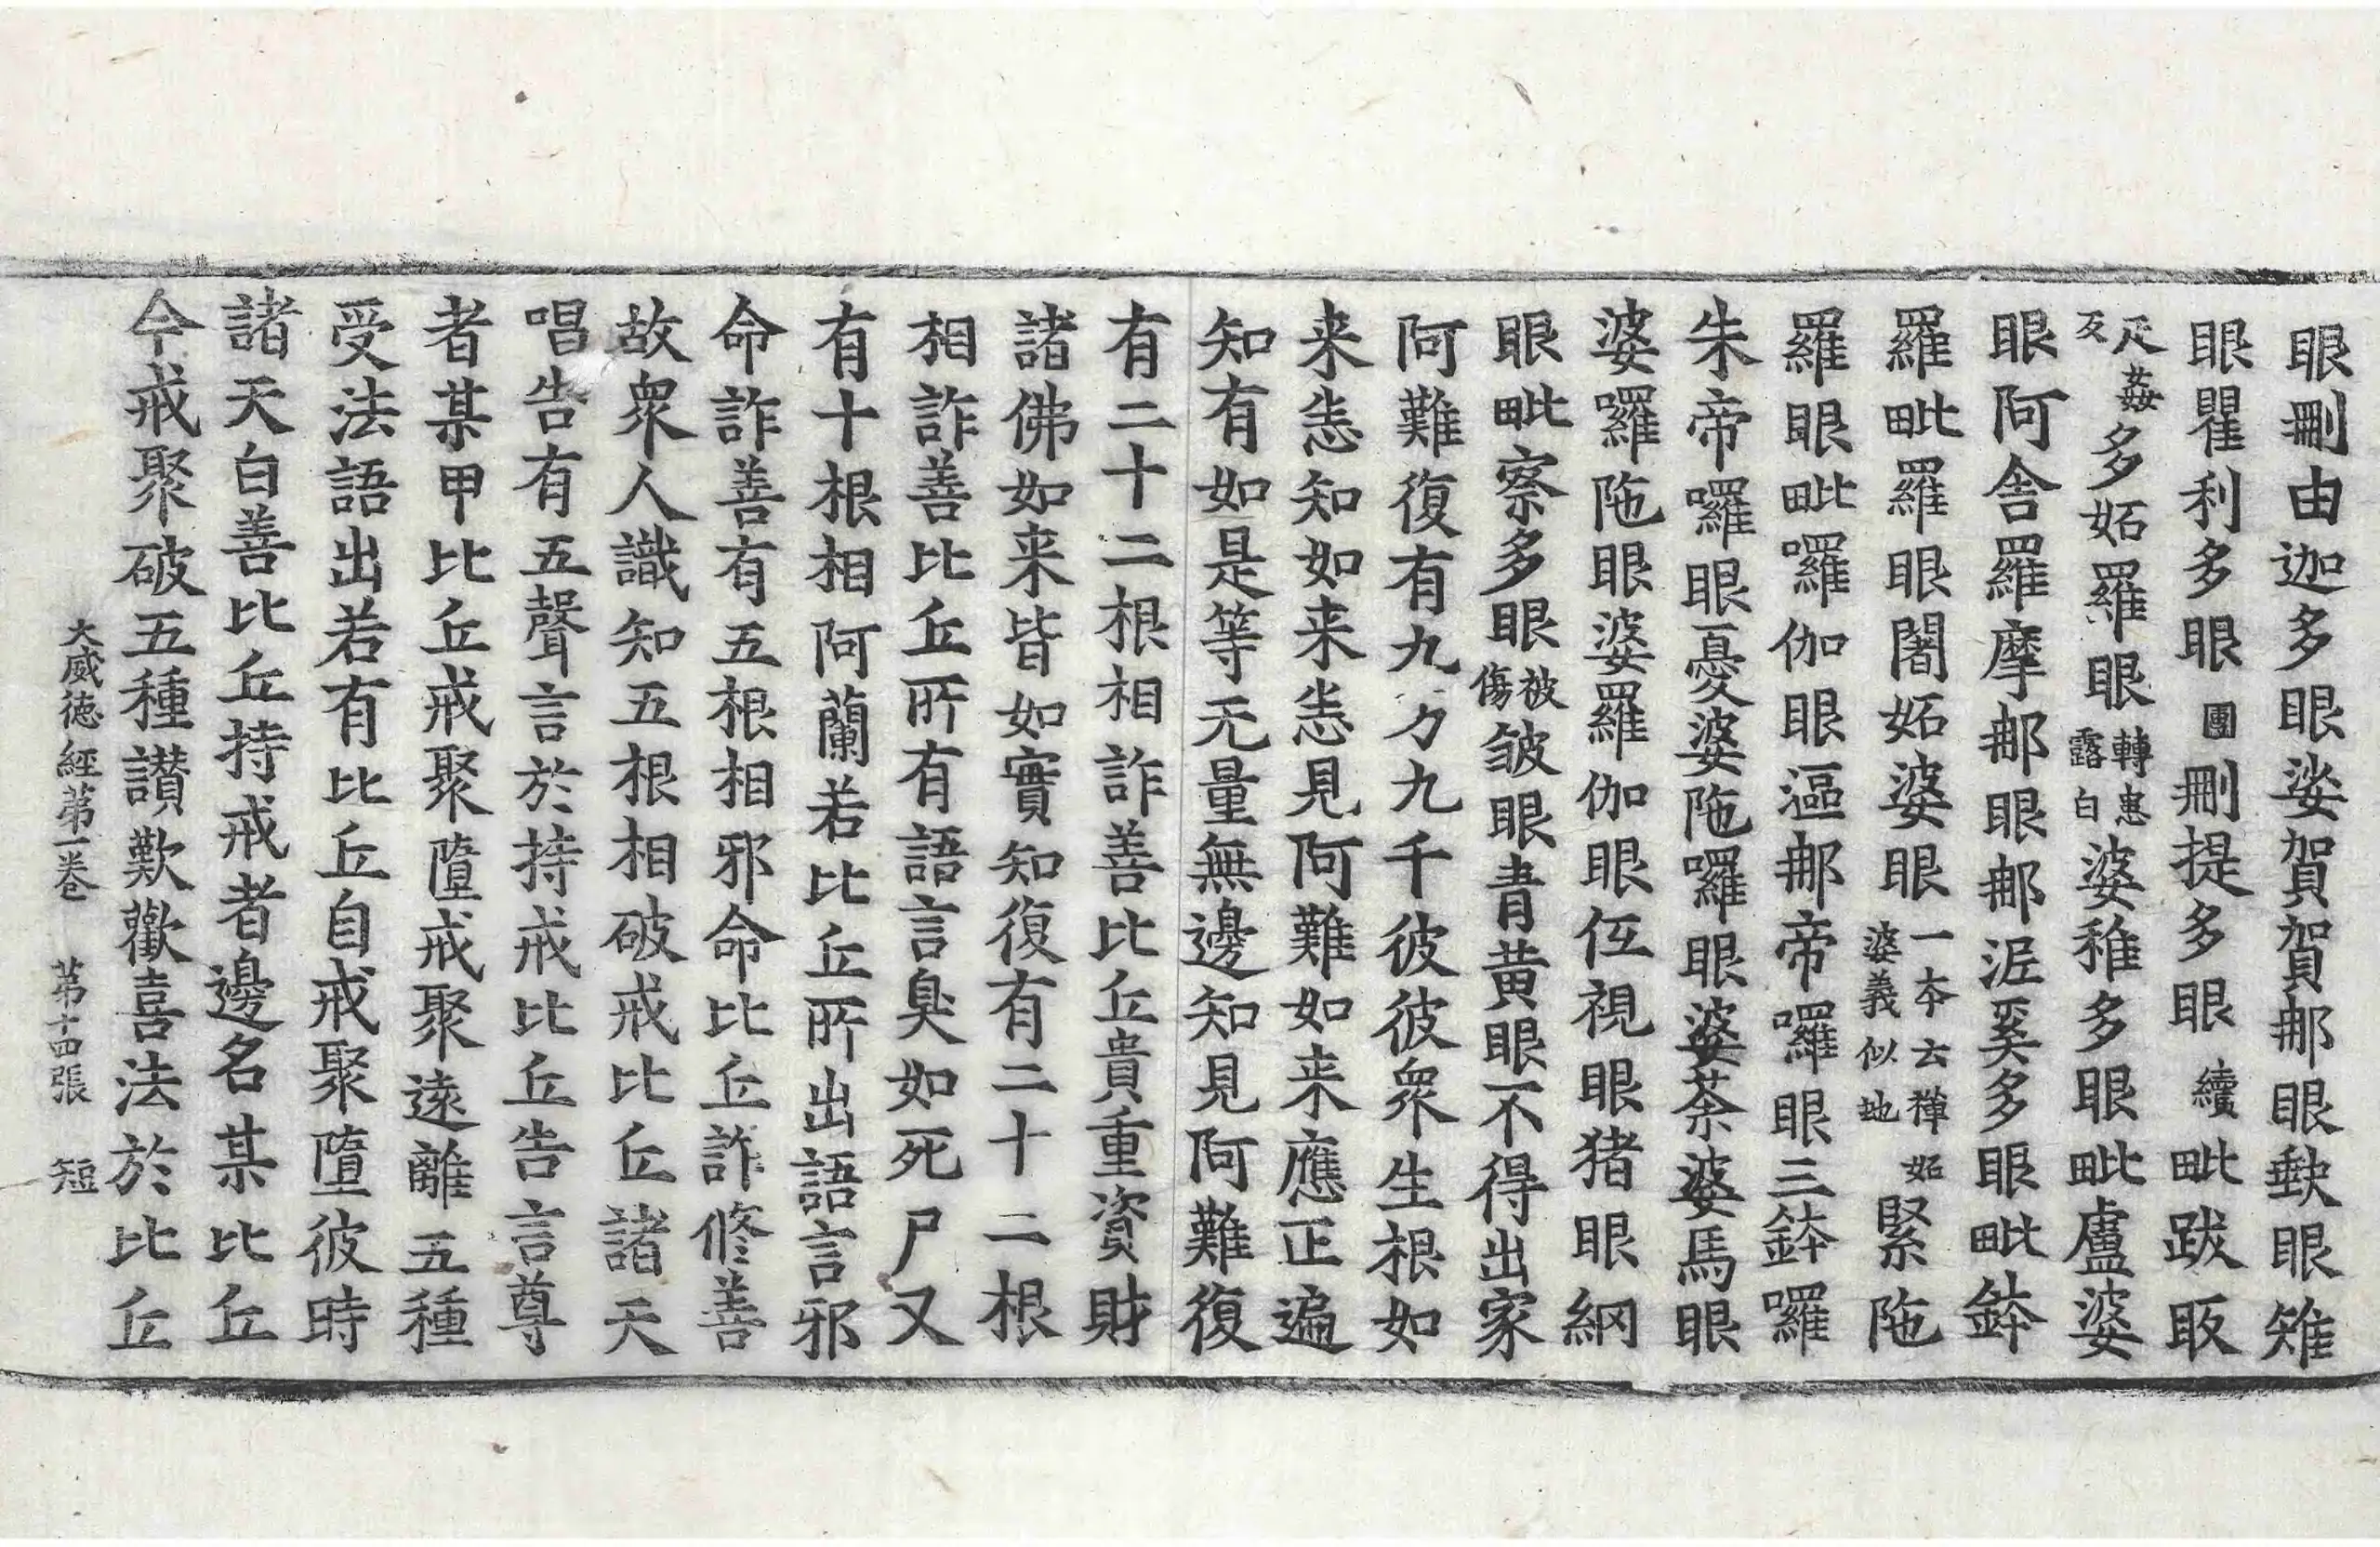 眼刪由迦多眼娑賀賀那眼𡍩眼雉
眼瞿利多眼團刪提多眼續毗跋販
疋姦反多妬羅眼轉惠露白婆稚多眼毗盧婆
眼阿舍羅摩那眼那泥奚多眼毗鉢
羅毗羅眼闍妬婆眼一夲云禪妬婆義似地緊陁
羅眼毗囉伽眼漚那帝囉眼三鉢囉
朱帝囉眼憂婆陁囉眼婆荼婆馬眼
婆囉陁眼婆羅伽眼伍視眼猪眼網
眼毗察多眼被傷皴眼青黄眼不得出家
阿難復有九力九千彼彼衆生根如
来恙知如来恙見阿難如来應正遍
知有如是等无量無邊知見阿難復
有二十二根相詐善比丘貴重資財
諸佛如来皆如實知復有二十二根
相詐善比丘所有語言臭如死尸又
有十根相阿蘭若比丘所出語言邪
命詐善有五根相邪命比丘詐修善
故衆人識知五根相破戒比丘諸天
唱告有五聲言於持戒比丘告言尊
者某甲比丘戒聚墮戒聚遠離五種
受法語出若有比丘自戒聚墮彼時
諸天白善比丘持戒者邊名某比丘
今戒聚破五種讃歎歡喜法於比丘
大威德經第一卷 第十四張 短